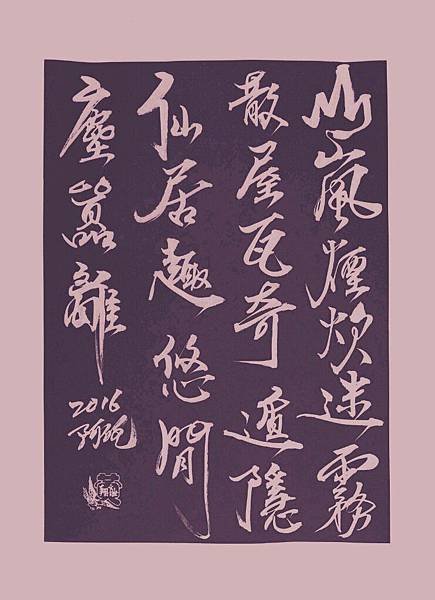 山嵐煙炊迷霧
散屋瓦奇遁隱
仙居趣悠閒
塵囂離
2016